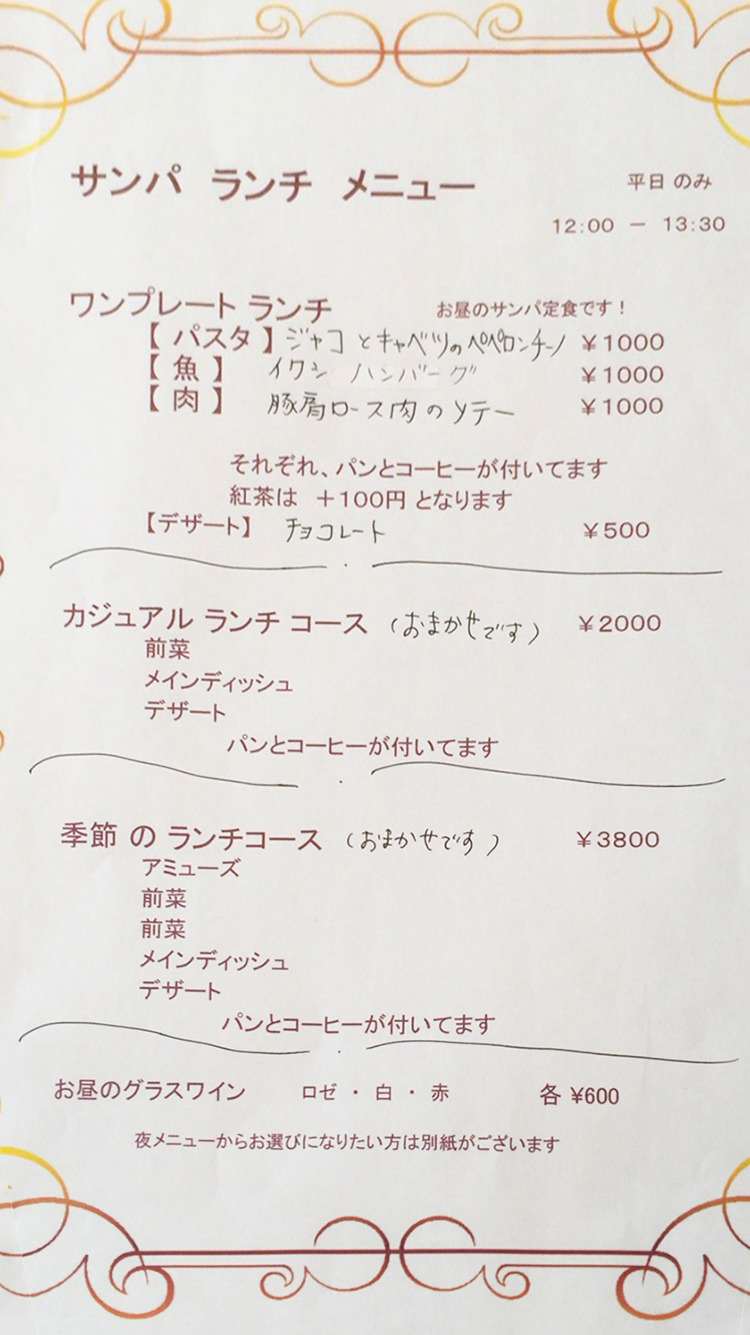 サンパ ランチ メニュー 平日 のみ
12:00 － 13:30
ワンプレート ランチ お昼のサンパ定食です！
【 パスタ 】 ジャコとキャベツのペペロンチーノ ￥1000
【 魚 】 イワシ ハンバーグ ￥1000
【 肉 】 豚肩ロース肉のソテー ￥1000
それぞれ、パンとコーヒーが付いてます
紅茶は ＋100円 となります
【デザート】 チョコレート ￥500
カジュアル ランチ コース (おまかせです) ￥2000
前菜
メインディッシュ
デザート
パンとコーヒーが付いてます
季節 の ランチコース (おまかせです) ￥3800
アミューズ
前菜
前菜
メインディッシュ
デザート
パンとコーヒーが付いてます
お昼のグラスワイン ロゼ ・ 白 ・ 赤 各 ¥600
夜メニューからお選びになりたい方は別紙がございます